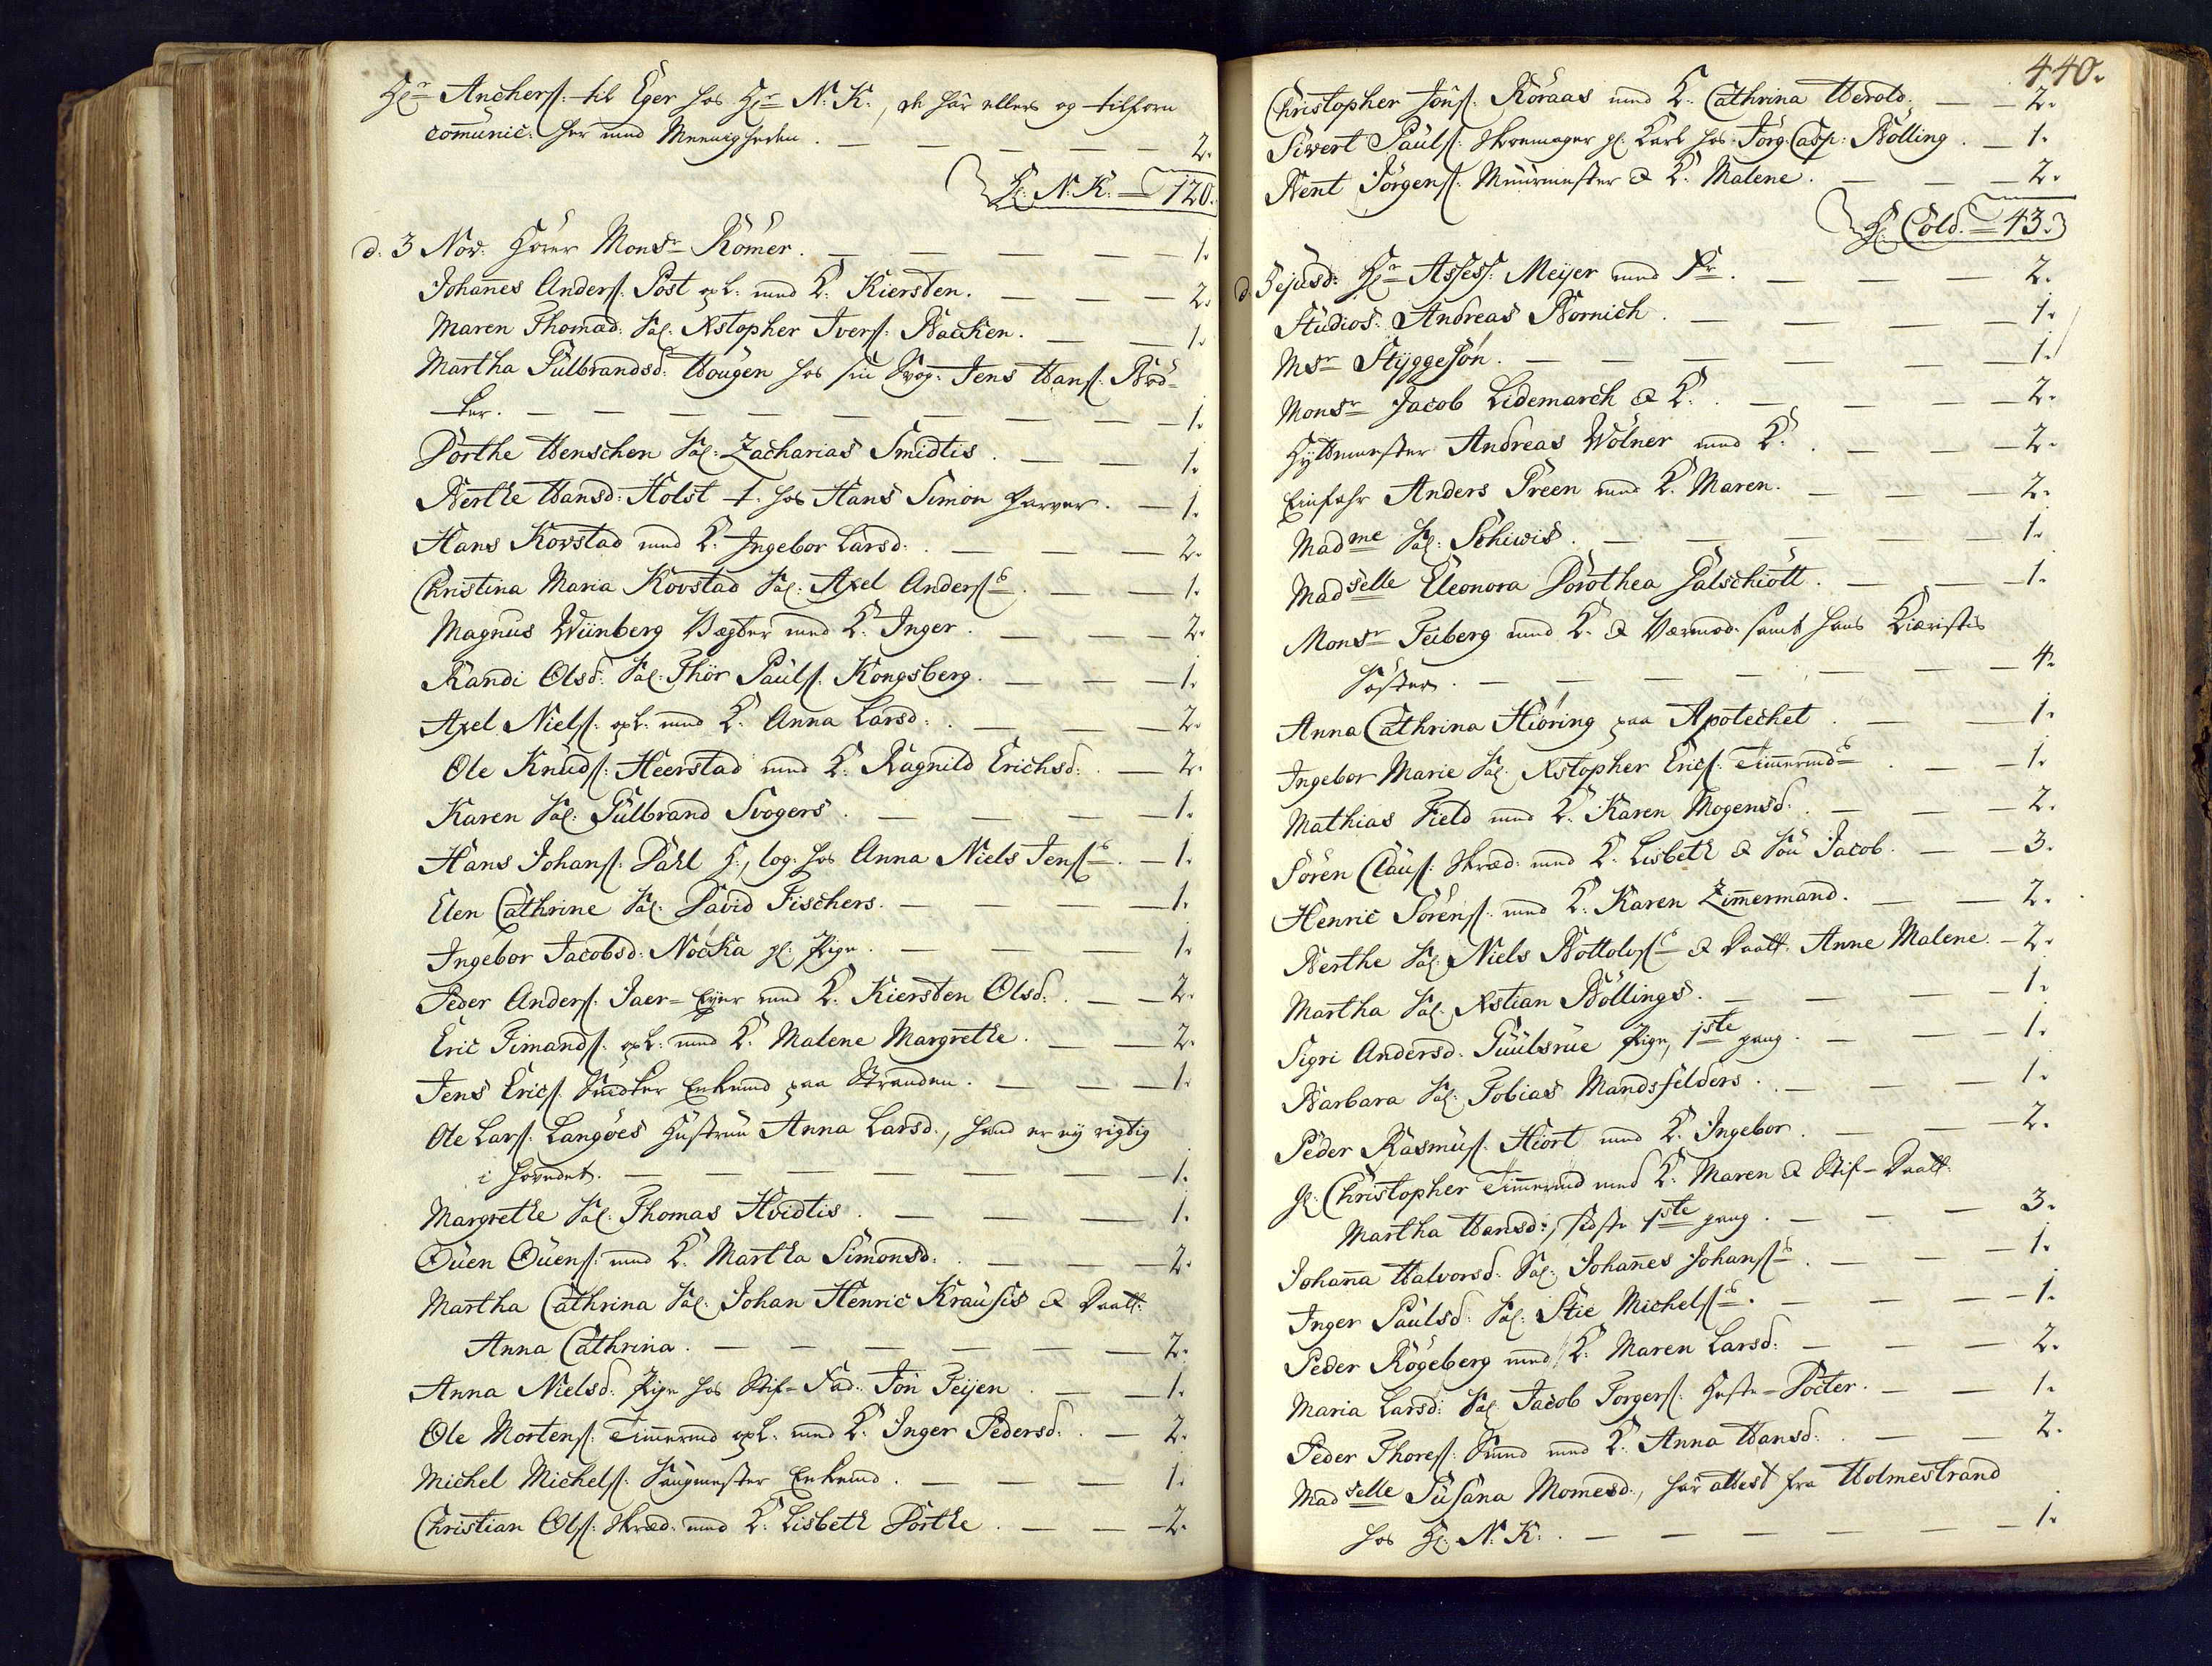 Hr Anchers: til Eger hos Hr N: K:, de har ellers og tilforn
comunic: her med Menigheden. — 2.
Hr: N: K: = 120.
d. 3 Nov: Hörer Monsr Römer. — 1.
Johanes Anders: Post opl: med K: Kiersten. — 2.
Maren Thomad: Sal: Xstopher Ivers: Backen. — 1.
Martha Gulbrandsd: Hougen hos sin Svog: Jens Hans: Bød-
ker. — 1.
Dorthe Henschen Sal: Zacharias Smidtis. — 1.
Berthe Hansd: Holst hos Hans Simon farver. — 1.
Hans Kovstad med K: Ingebor Larsd: — 2.
Christina Maria Kovstad Sal: Axel Anders: — 1.
Magnus Wiinberg Vægter med K: Inger. — 2.
Randi Olsd: Sal: Thor Pauls: Kongsberg. — 1.
Axel Niels: opl: med K: Anna Larsd: — 2.
Ole Knuds: Heerstad med K: Ragnild Erichsd: — 2.
Karen Sal: Gulbrand Svogers. — 1.
Hans Johans: Dahl H:, log: hos Anna Niels Jens: — 1.
Elen Cathrine Sal: David Fischers. — 1.
Ingebor Jacobsd: Nocka gl: Pige. — 1.
Peder Anders: Jaer-Eyer med K: Kiersten Olsd: — 2.
Eric Simands: opl: med K: Malene Margrethe. — 2.
Jens Erics: Snedker Enkemd paa Stranden. — 1.
Ole Lars: Langöes Hustrue Anna Larsd:, hand er ey rigtig
i hovedet. — 1.
Margrethe Sal: Thomas Hvidtis. — 1.
Ouen Ouens: med K: Martha Simonsd: — 2.
Martha Cathrina Sal: Johan Henric Krausis & Daatt:
Anna Cathrina. — 2.
Anna Nielsd: Pige hos Stif-Fad: Jon Teijen — 1.
Ole Mortens: Timermd opl: med K: Inger Pedersd: — 2.
Michel Michels: Saugmester Enkemd. — 1.
Christian Ols: Skræd: med K: Lisbeth Dorthe. — 2.
440.
Christopher Jons: Röraas med K: Cathrina Herold. — 2.
Sivert Pauls: Skoemager gl: Karl hos Jörg: Casp: Bölling. — 1.
Bent Jörgens: Muurmester & K: Malene. — 2.
Hr: Cold. = 43.
d. 3 ejusd: Hr Assess: Meijer med Fr. — 2.
Studios: Andreas Bornich. — 1.
Msr Styggesön. — 1.
Monsr Jacob Lidemarch & K: — 2.
Hyttemester Andreas Wölner med K: — 2.
Einfahr Anders Preen med K: Maren. — 2.
Madme Sal: Schiwis. — 1.
Madselle Eleonora Dorothea Palschiött. — 1.
Monsr Feiberg med K: & Værmod: samt hans Kiæristis
Söster. — 4.
Anna Cathrina Hiöring paa Apotechet. — 1.
Ingebor Marie Sal: Xstopher Erics: Timermds — 1.
Mathias Field med K: Karen Mogensd: — 2.
Sören Claus: Skræd: med K: Lisbeth & Sön Jacob. — 3.
Henric Sörens: med K: Karen Zimermand. — 2.
Berthe Sal: Niels Bottols: & Daatt: Anne Malene. — 2.
Martha Sal: Xstian Böllings. — 1.
Sigri Andersd: Guulsrue Pige, 1ste gang. — 1.
Barbara Sal: Tobias Mandsfelders. — 1.
Peder Rasmus: Hiort med K: Ingebor. — 2.
gl: Christopher Timermd med K: Maren & Stif-Daatt:
Martha Hansd:, sidste 1ste gang. — 3.
Johana Halvorsd: Sal: Johanes Johans: — 1.
Inger Paulsd: Sal: Stie Michels: — 1.
Peder Rögeberg med K: Maren Larsd: — 2.
Maria Larsd: Sal: Jacob Torgers: Heste-Docter. — 1.
Peder Thores: Smed med K: Anna Hansd: — 2.
Madselle Susana Momesd:, har attest fra Holmestrand
hos Hr: N: K: — 1.